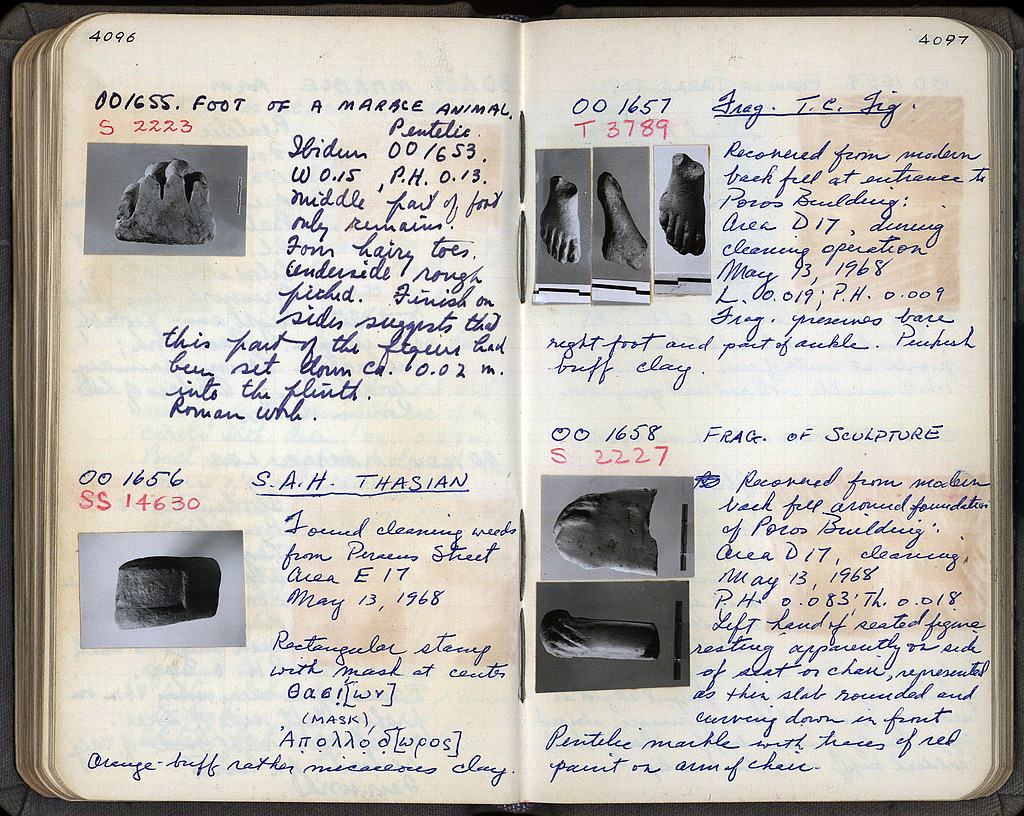 4096
OO 1655. FOOT OF A MARBLE ANIMAL.
S 2223
Pentelic.
Ibidem OO 1653.
W 0.15, P.H. 0.13.
Middle part of foot
only remains.
Four hairy toes.
Underside rough
picked. Finish on
sides suggests that
this part of the figure had
been set down ca. 0.02 m.
into the plinth.
Roman work.
OO 1656 S.A.H. THASIAN
SS 14630
Found cleaning weeds
from Piraeus Street
Area E 17
May 13, 1968
Rectangular stamp
with mask at center
Θασί[ων]
(MASK)
Ἀπολλόδ[ωρος]
Orange-buff rather micaceous clay.
4097
OO 1657 Frag. T.C. Fig.
T 3789
Recovered from modern
back fill at entrance to
Poros Building:
Area D 17, during
cleaning operation
May 13, 1968
L. 0.019; P.H. 0.009
Frag. preserves bare
right foot and part of ankle. Pinkish
buff clay.
OO 1658 FRAG. OF SCULPTURE
S 2227
Recovered from modern
back fill around foundation
of Poros Building:
Area D 17, cleaning,
May 13, 1968
P.H. 0.083; Th. 0.018
Left hand of seated figure
resting apparently on side
of seat or chair, represented
as thin slab rounded and
curving down in front
Pentelic marble with traces of red
paint on arm of chair.